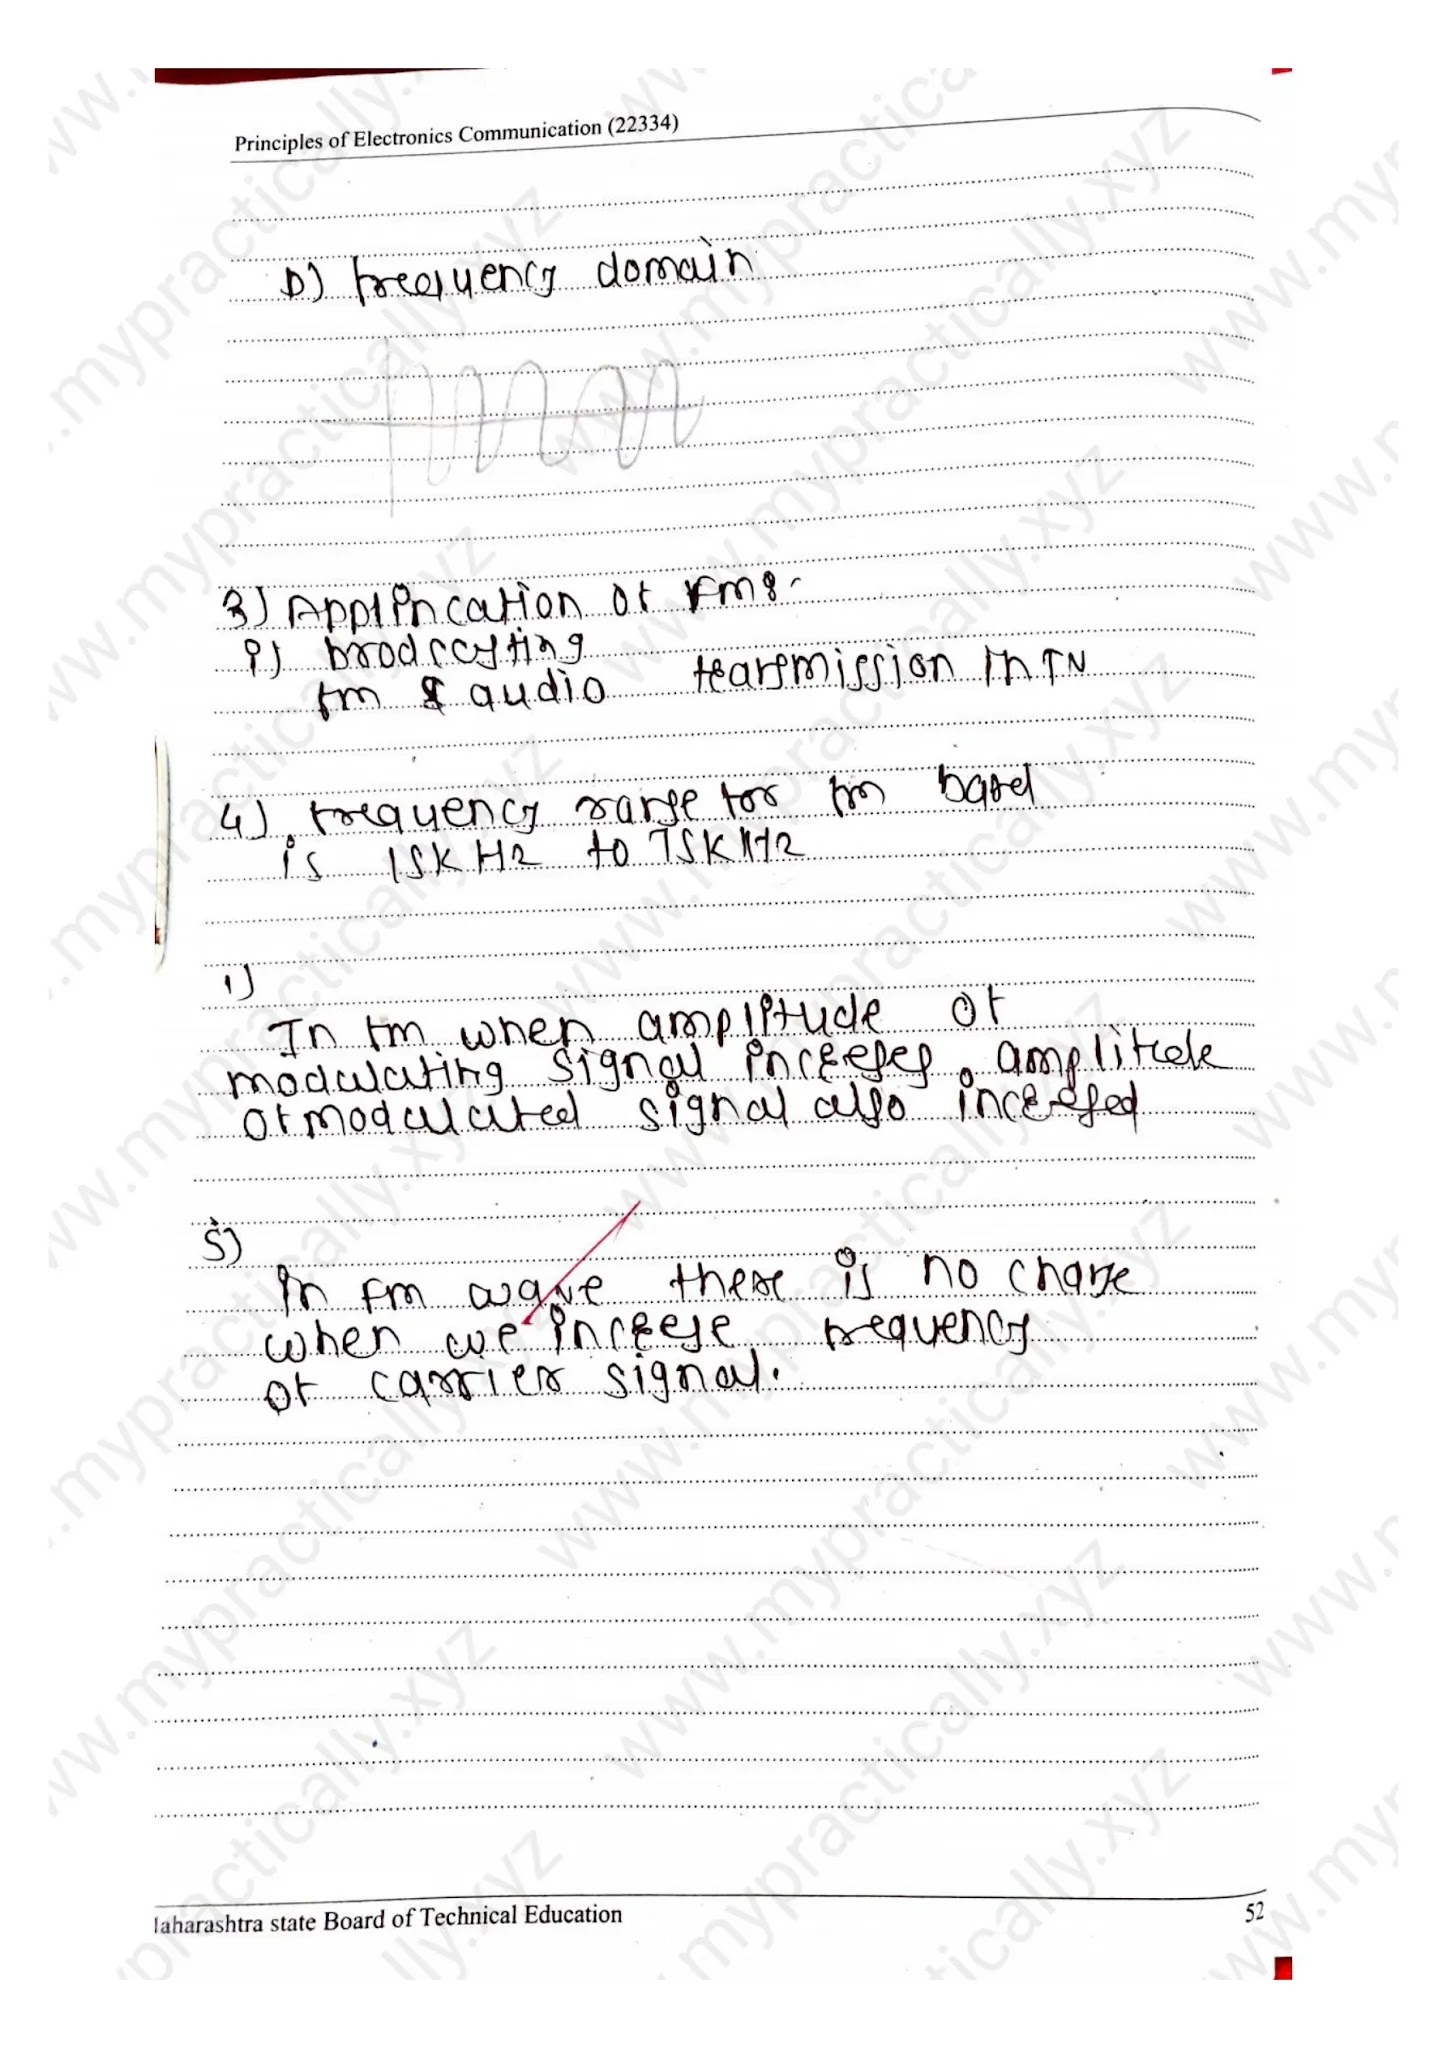 Principles of Electronics Communication (22334)
D) frequency domain
3) Applincation of FM :-
i) brodccsting
fm & audio tearsmission in TN
4) frequency range for fm band
is 15KHz to 75KHz
1)
In fm when amplitude of
modulating signal increses, amplitude
of modulated signal also incresed
5)
in Fm wave there is no change
when we increese frequency
of carrier signal.
laharashtra state Board of Technical Education
52
www.mypractically.xyz